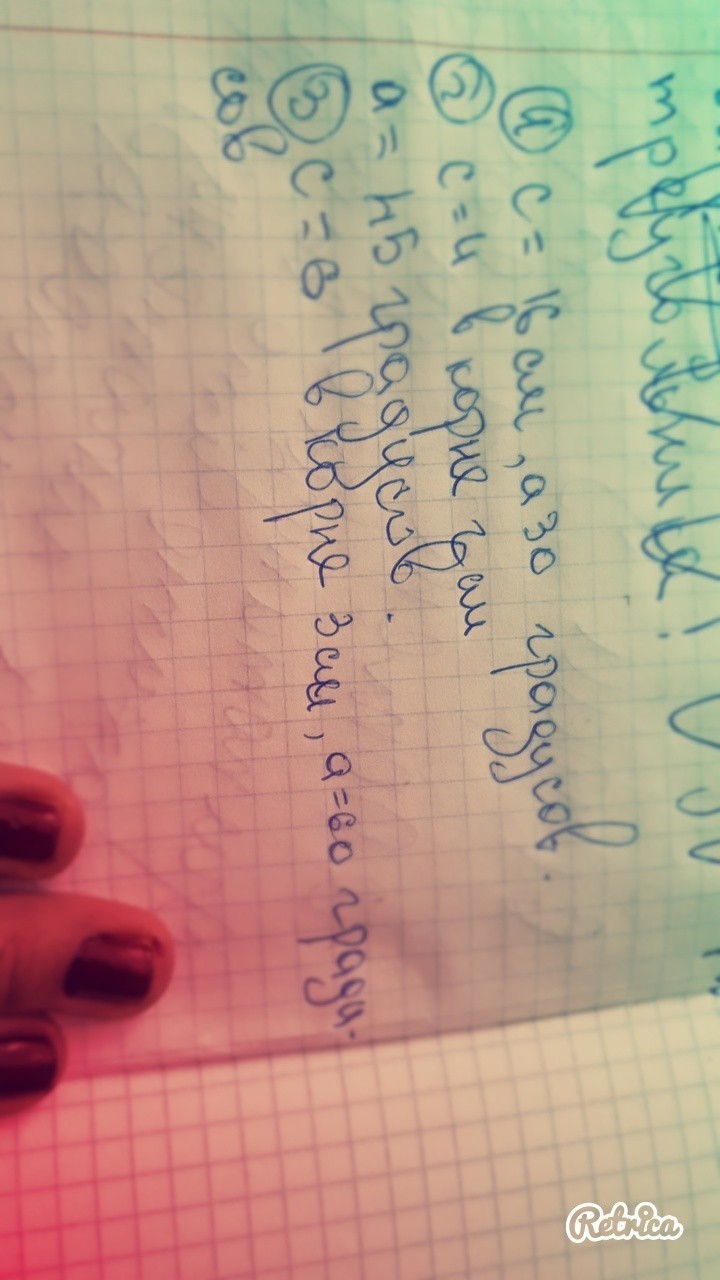 треугольника!
① c = 16 см, a 30 градусов.
② c = 4 в корне 2 см
a = 45 градусов.
③ c = 8 в корне 3 см, a = 60 граду-
сов
Retrica